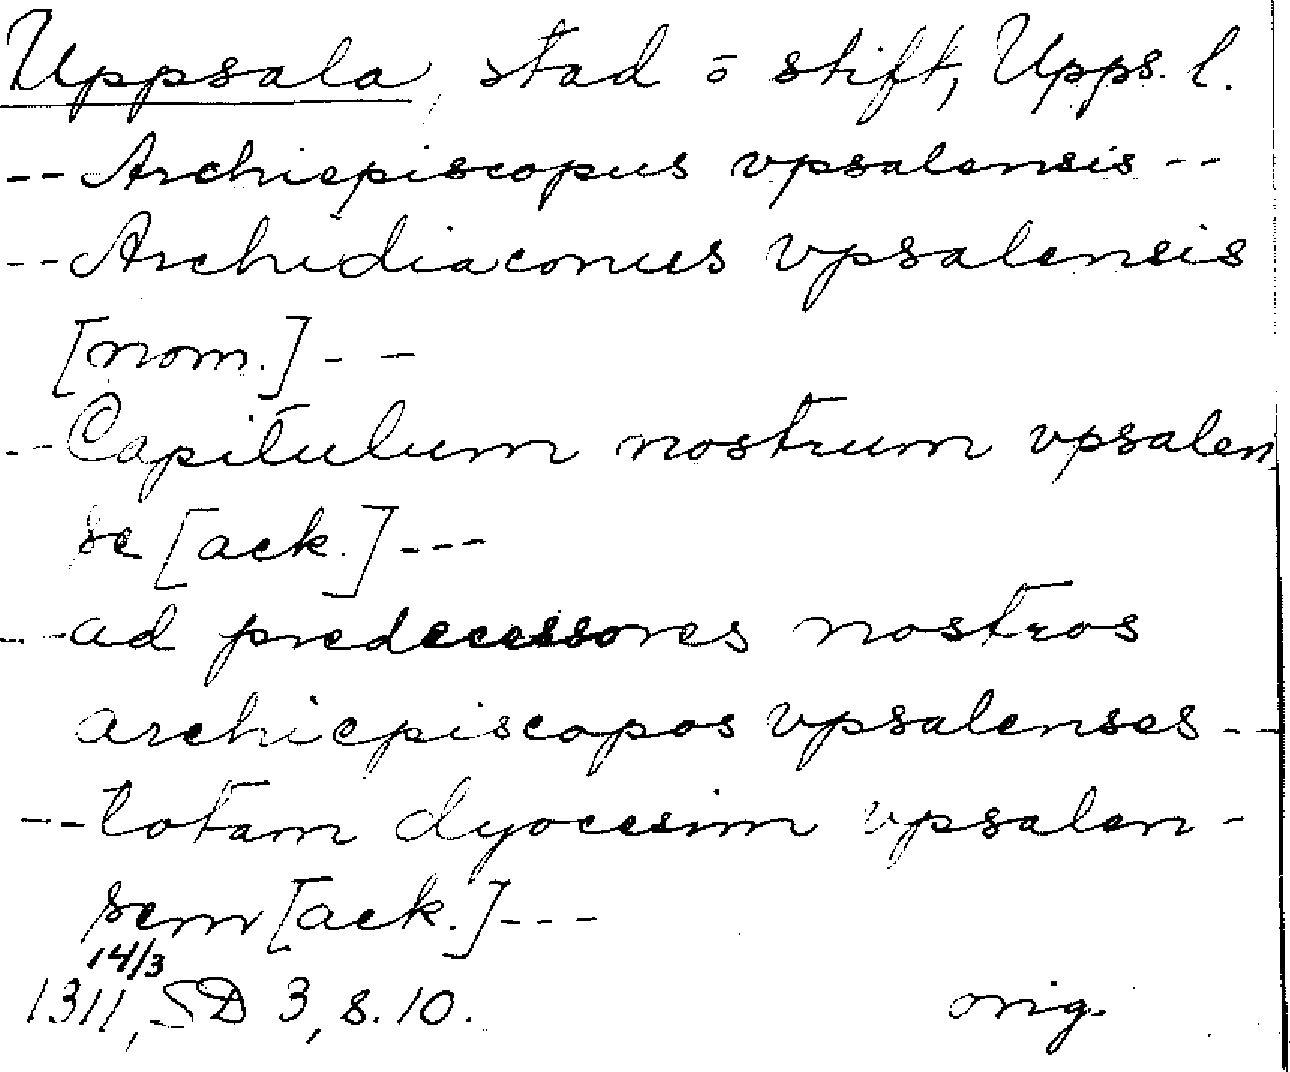 Uppsala, stad o stift, Upps. l.
-- Archiepiscopus vpsalensis --
-- Archidiaconus vpsalensis
[nom.] - -
-- Capitulum nostrum vpsalen
se [ack.] ---
--- ad predecessores nostros
archiepiscopos vpsalenses --
--- totam dyocesim vpsalen-
sem [ack.] ---
14/3
1311, SD 3, s. 10. orig.